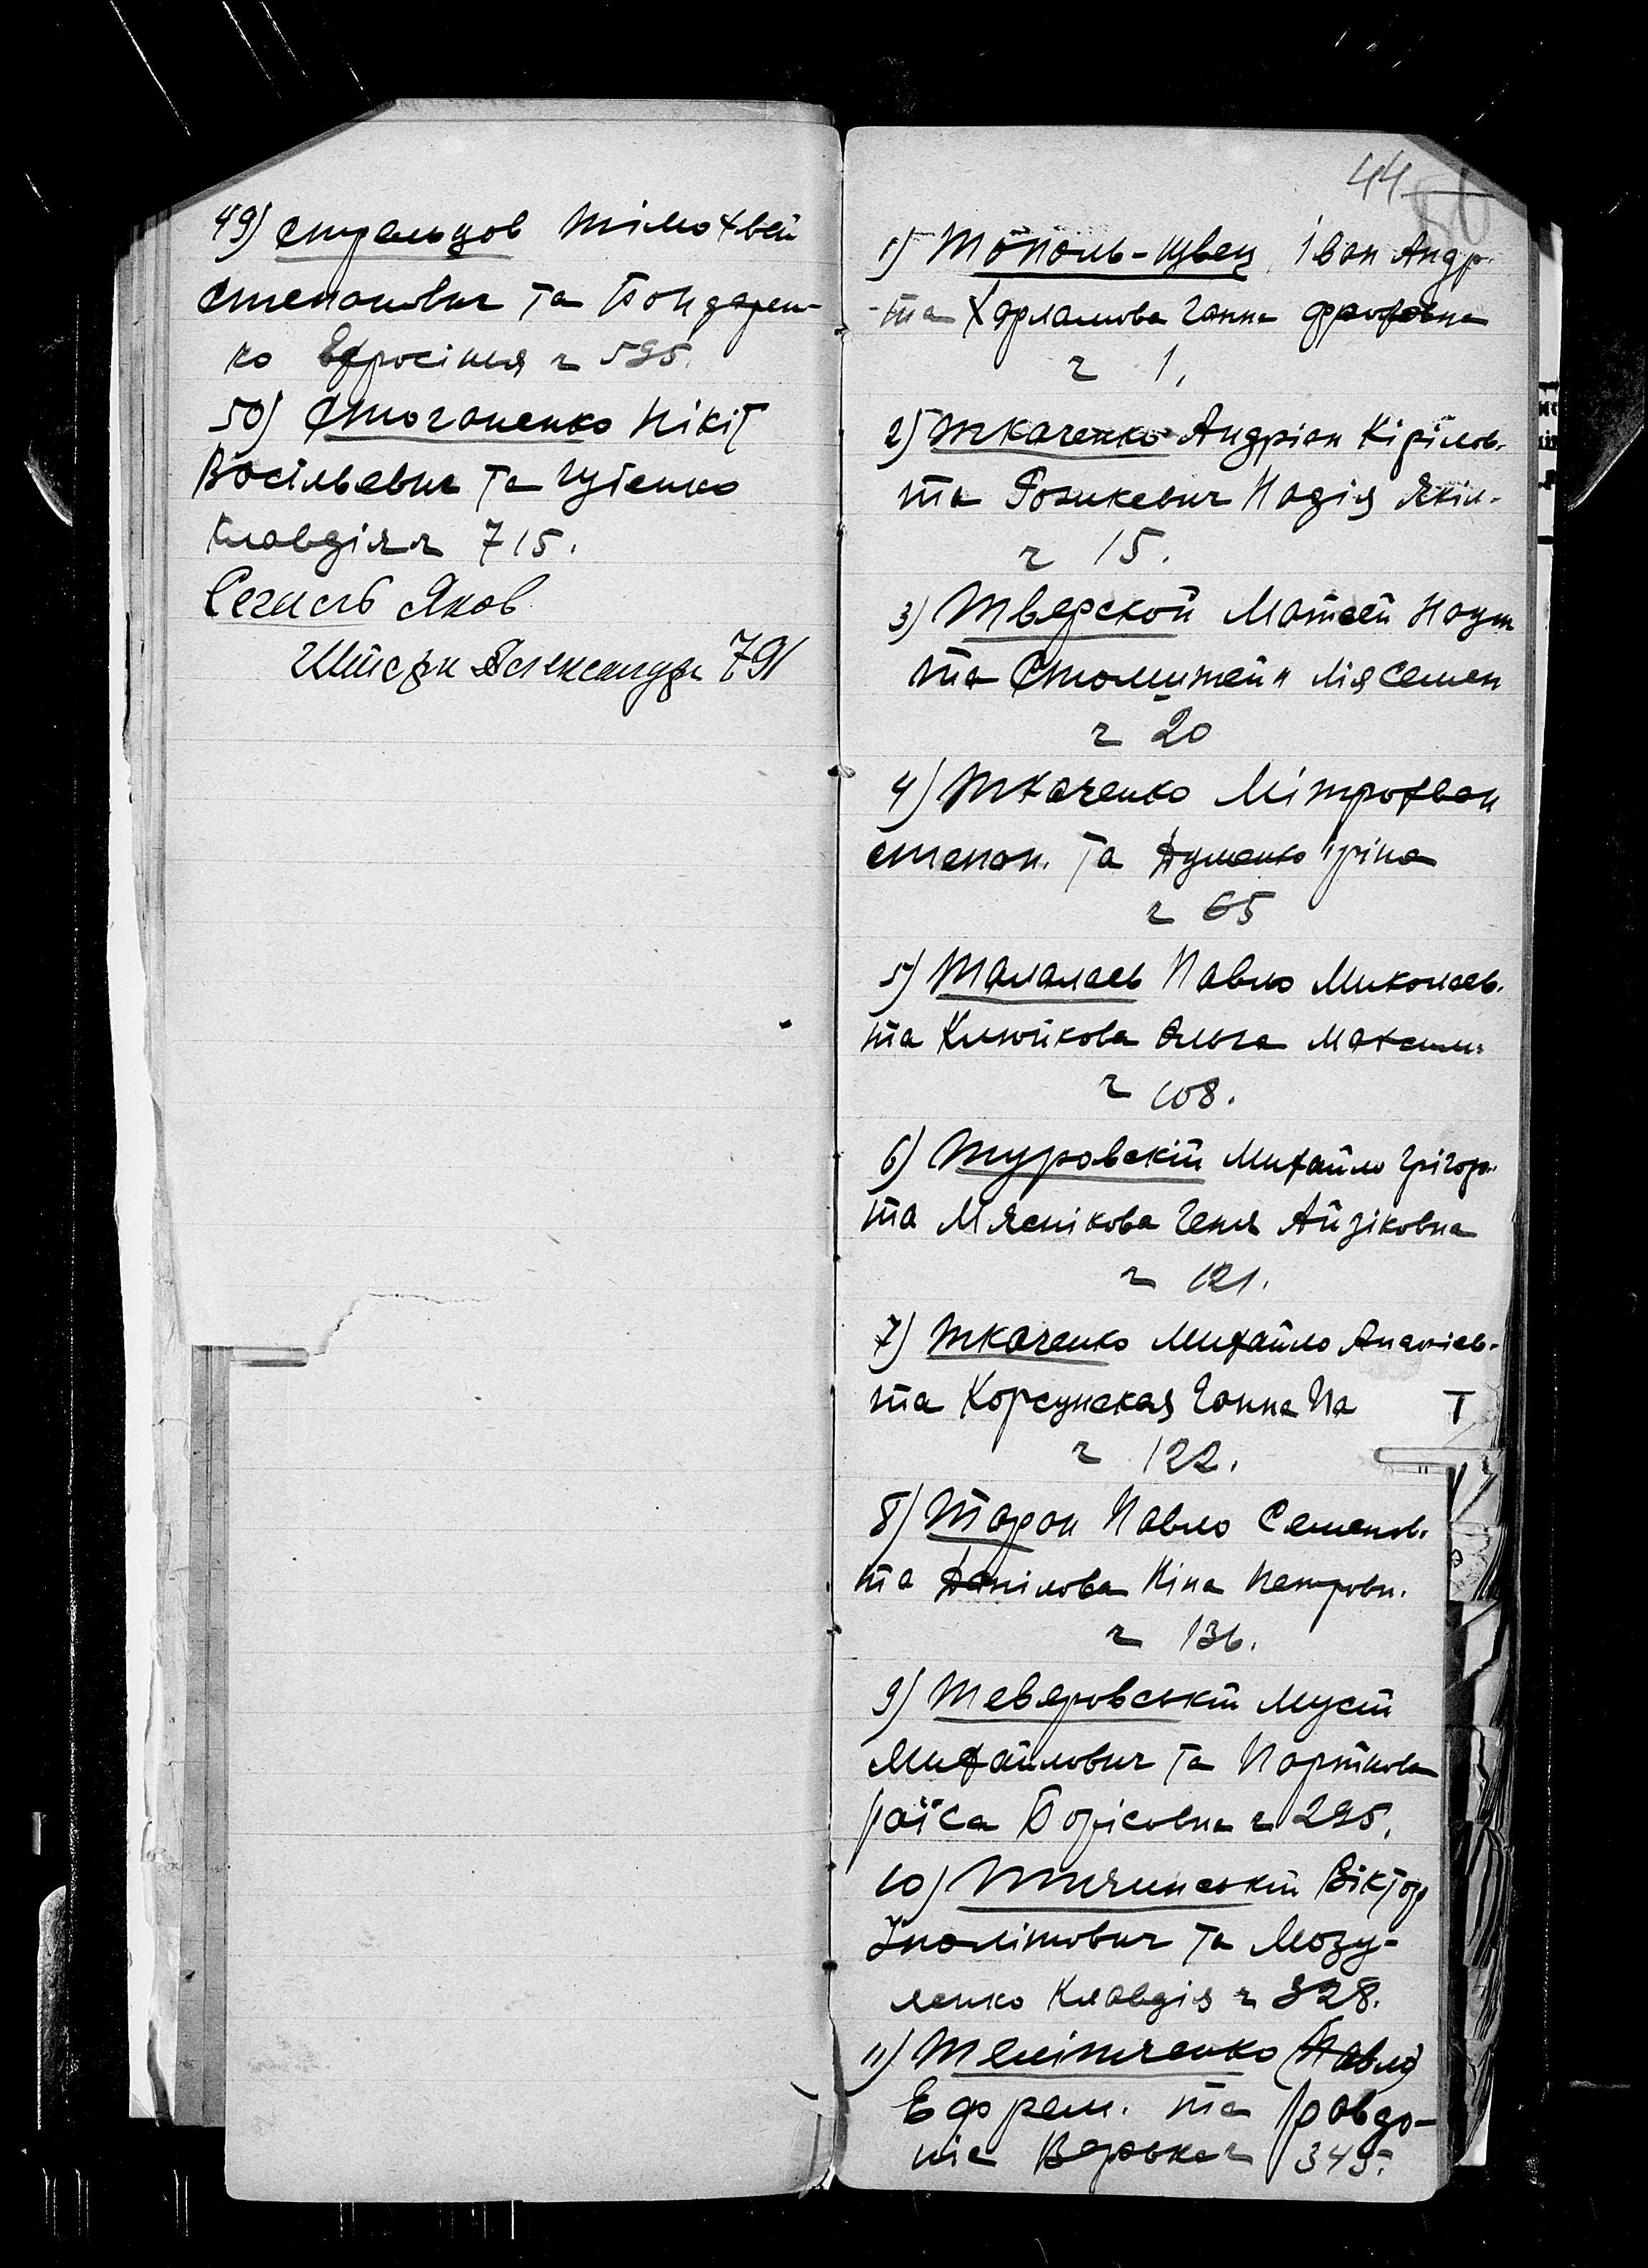 49) Стрельцов Тімохвей
Степанович та Бондарен-
ко Ефросінія ч 595.
50) Стогоненко Нікіт
Васільевич та Гуіенко
Клавдія ч 715.
Сегаль Яков
Штерн Александр 791
44
1) Тополь-Цвец Іван Андр.
та Харламова Ганна
ч 1,
2) Ткаченко Андріан Кірілов.
та Надія Якім.
ч 15.
3) Тверской Матвей Наум
та Столиштейн Лія Семен
ч 20
4) Ткаченко Мітрохван
степан. та Дуценко Іріна
ч 65
5) Талалаев Павло Миколаев.
та Ключкова Ольга Максим.
ч 108.
6) Туровскій Михайло Грігор.
та Мяснікова Геня Айзіковна
ч 121.
7) Ткаченко Михайло Ананіев.
та Корсунская Ганна Па
Т
ч 122.
8) Таран Павло Семенов.
та Данілова Ніна Петровн.
ч 136.
9) Теверовський Мусій
Михайлович та Портнова
раїса Борісовна ч 295.
10) Тичинській Віктор
Іполітович та Мозу-
ленко Клавдія ч 328.
11) Телітченко (Павло)
Ефрем. та
Варька ч 345.